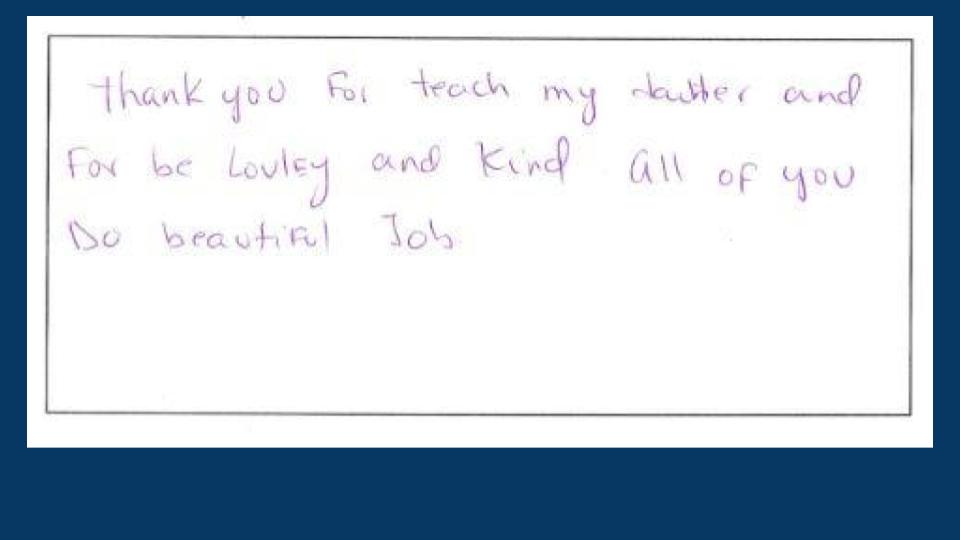 Thank you For teach my dautter and
For be Lovley and Kind. all of you
Do beautiful Job.